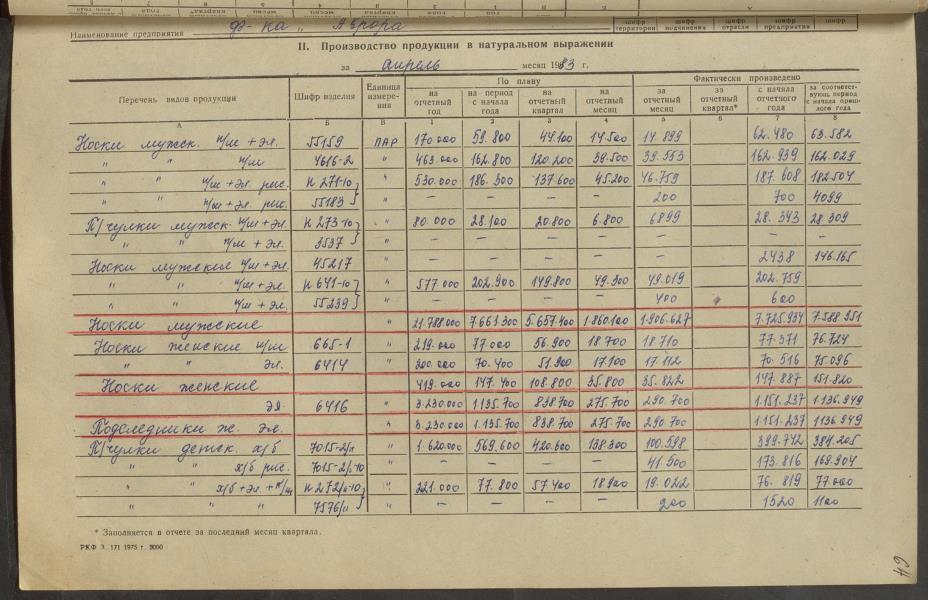 Наименование предприятия ф-ка „Аврора
шифр территории шифр подчинения шифр отрасли шифр предприятия шифр
II. Производство продукции в натуральном выражении
за апрель месяц 1983 г.
Перечень видов продукции Шифр изделия Единица измерения По плану Фактически произведено
на отчетный год на период с начала года на отчетный квартал на отчетный месяц за отчетный месяц за отчетный квартал* с начала отчетного года за соответствующ. период с начала прошлого года
А Б В 1 2 3 4 5 6 7 8
Носки мужск. п/ш + эл. 55159 ПАР 170.000 59.800 44.100 14.500 14.899 62.480 63.582
" " п/ш 4616-2 " 463.000 162.800 120.200 39.500 39.553 162.939 162.029
" " п/ш + эл. рис. Н 271-10 " 530.000 186.300 137.600 45.200 46.759 187.608 182.504
" " п/ш + эл. рис. 55183 " – – – – 200 700 4099
П/чулки мужск. п/ш + эл. Н 273-10 " 80.000 28.100 20.800 6.800 6899 28.343 28.309
" " п/ш + эл. 3537 " – – – – – – –
Носки мужские п/ш + эл. 45217 " – – – – – 2438 146.165
" " п/ш + эл. Н 641-10 " 577.000 202.900 149.800 49.300 49.019 202.759
" " п/ш + эл. 55239 " – – – – 400 600
Носки мужские " 21.788.000 7.661.300 5.657.400 1.860.100 1.906.627 7.725.934 7.588.951
Носки женские п/ш 665-1 " 219.000 77.000 56.900 18.700 18.710 77.371 76.724
" " эл. 6414 " 200.000 70.400 51.900 17.100 17.112 70.516 75.096
Носки женские " 419.000 147.400 108.800 35.800 35.822 147.887 151.820
эл. 6416 " 3.230.000 1.135.700 838.700 275.700 290.700 1.151.237 1.136.949
Подследники ж. эл. " 3.230.000 1.135.700 838.700 275.700 290.700 1.151.237 1136.949
П/чулки детск. х/б 7015-2/п " 1.620.000 569.600 420.600 138.300 100.598 399.742 384.205
" " х/б рис. 7015-2/п-10 " – – – – 41.500 173.816 169.904
" " х/б + эл. + п/ш Н 272/п-10 " 221.000 77.800 57.400 18.900 19.022 76.819 77.000
" " " " 7576/п " – – – – 200 1520 1100
* Заполняется в отчете за последний месяц квартала.
РКФ З. 171 1975 г. 3000